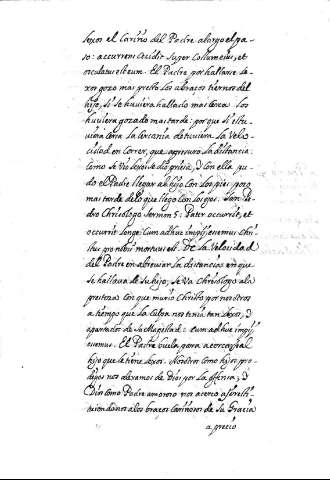 lexos el Cariño del Padre alargo el pa-
so: accurrens cecidit super Collum eius, et
osculatus est eum. El Padre por hallarse le-
xos gozo mas presto los abrazos tiernos del
hijo, si se huviera hallado mas cerca los
huviera gozado mas tarde: porque si estu-
viera cerca la cercania detuviera la velo-
cidad en correr, que apresuro la distancia:
como se vio lexos dio priesa, y con ella pu-
do el Padre llegar al hijo con los pies poco
mas tarde de lo que llego con los ojos. San Pe-
dro Chrisologo Sermon 5: Pater occurrit, et
occurrit longe: Cum adhuc impij essemus Chris-
tus pro nobis mortuus est. De la Velosidad
del Padre en abreviar la distancia en que
se hallava de su hijo, se va Chrisologo a la
presteza con que murio Christo por nosotros
a tiempo que la culpa nos tenia tan lexos, y
apartados de su Magestad: cum adhuc impij
essemus. El Padre vuela para acercarse al
hijo que le tiene lexos. Nosotros como hijos pro-
digos nos alexamos de Dios por la offensa; y
Dios como Padre amoroso nos acerca a si resti-
tuiendonos a los brazos cariñosos de su Gracia
a precio